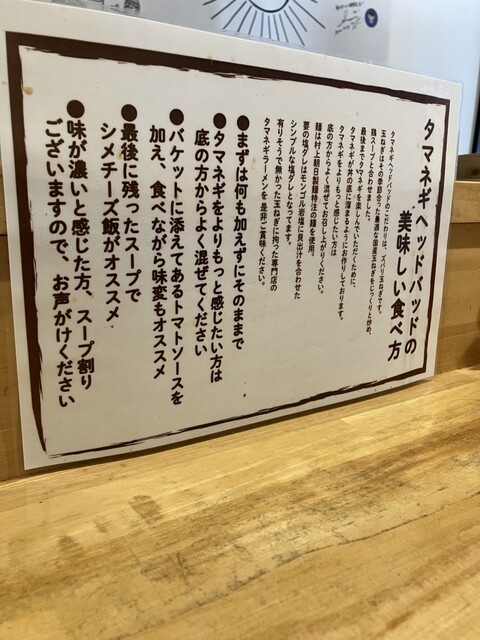 タマネギヘッドバッドの
美味しい食べ方
タマネギヘッドバッドのこだわりは、ズバリ玉ねぎです。
玉ねぎはその季節合った最適な国産玉ねぎをじっくりと炒め、
鶏スープと合わせました。
最後までタマネギを楽しんでいただくために、
タマネギが丼の底に溜まるようにお作りしております。
タマネギをよりもっと感じたい方は
底の方からよく混ぜてお召し上がりください。
麺は村上朝日製麺特注の麺を使用。
要の塩ダレはモンゴル岩塩に貝出汁を合わせた
シンプルな塩ダレとなってます。
有りそうで無かった玉ねぎに拘った専門店の
タマネギラーメンを是非ご賞味ください。
●まずは何も加えずにそのままで
●タマネギをよりもっと感じたい方は
底の方からよく混ぜてください
●バケットに添えてあるトマトソースを
加え、食べながら味変もオススメ
●最後に残ったスープで
シメチーズ飯がオススメ
●味が濃いと感じた方、スープ割り
ございますので、お声がけください